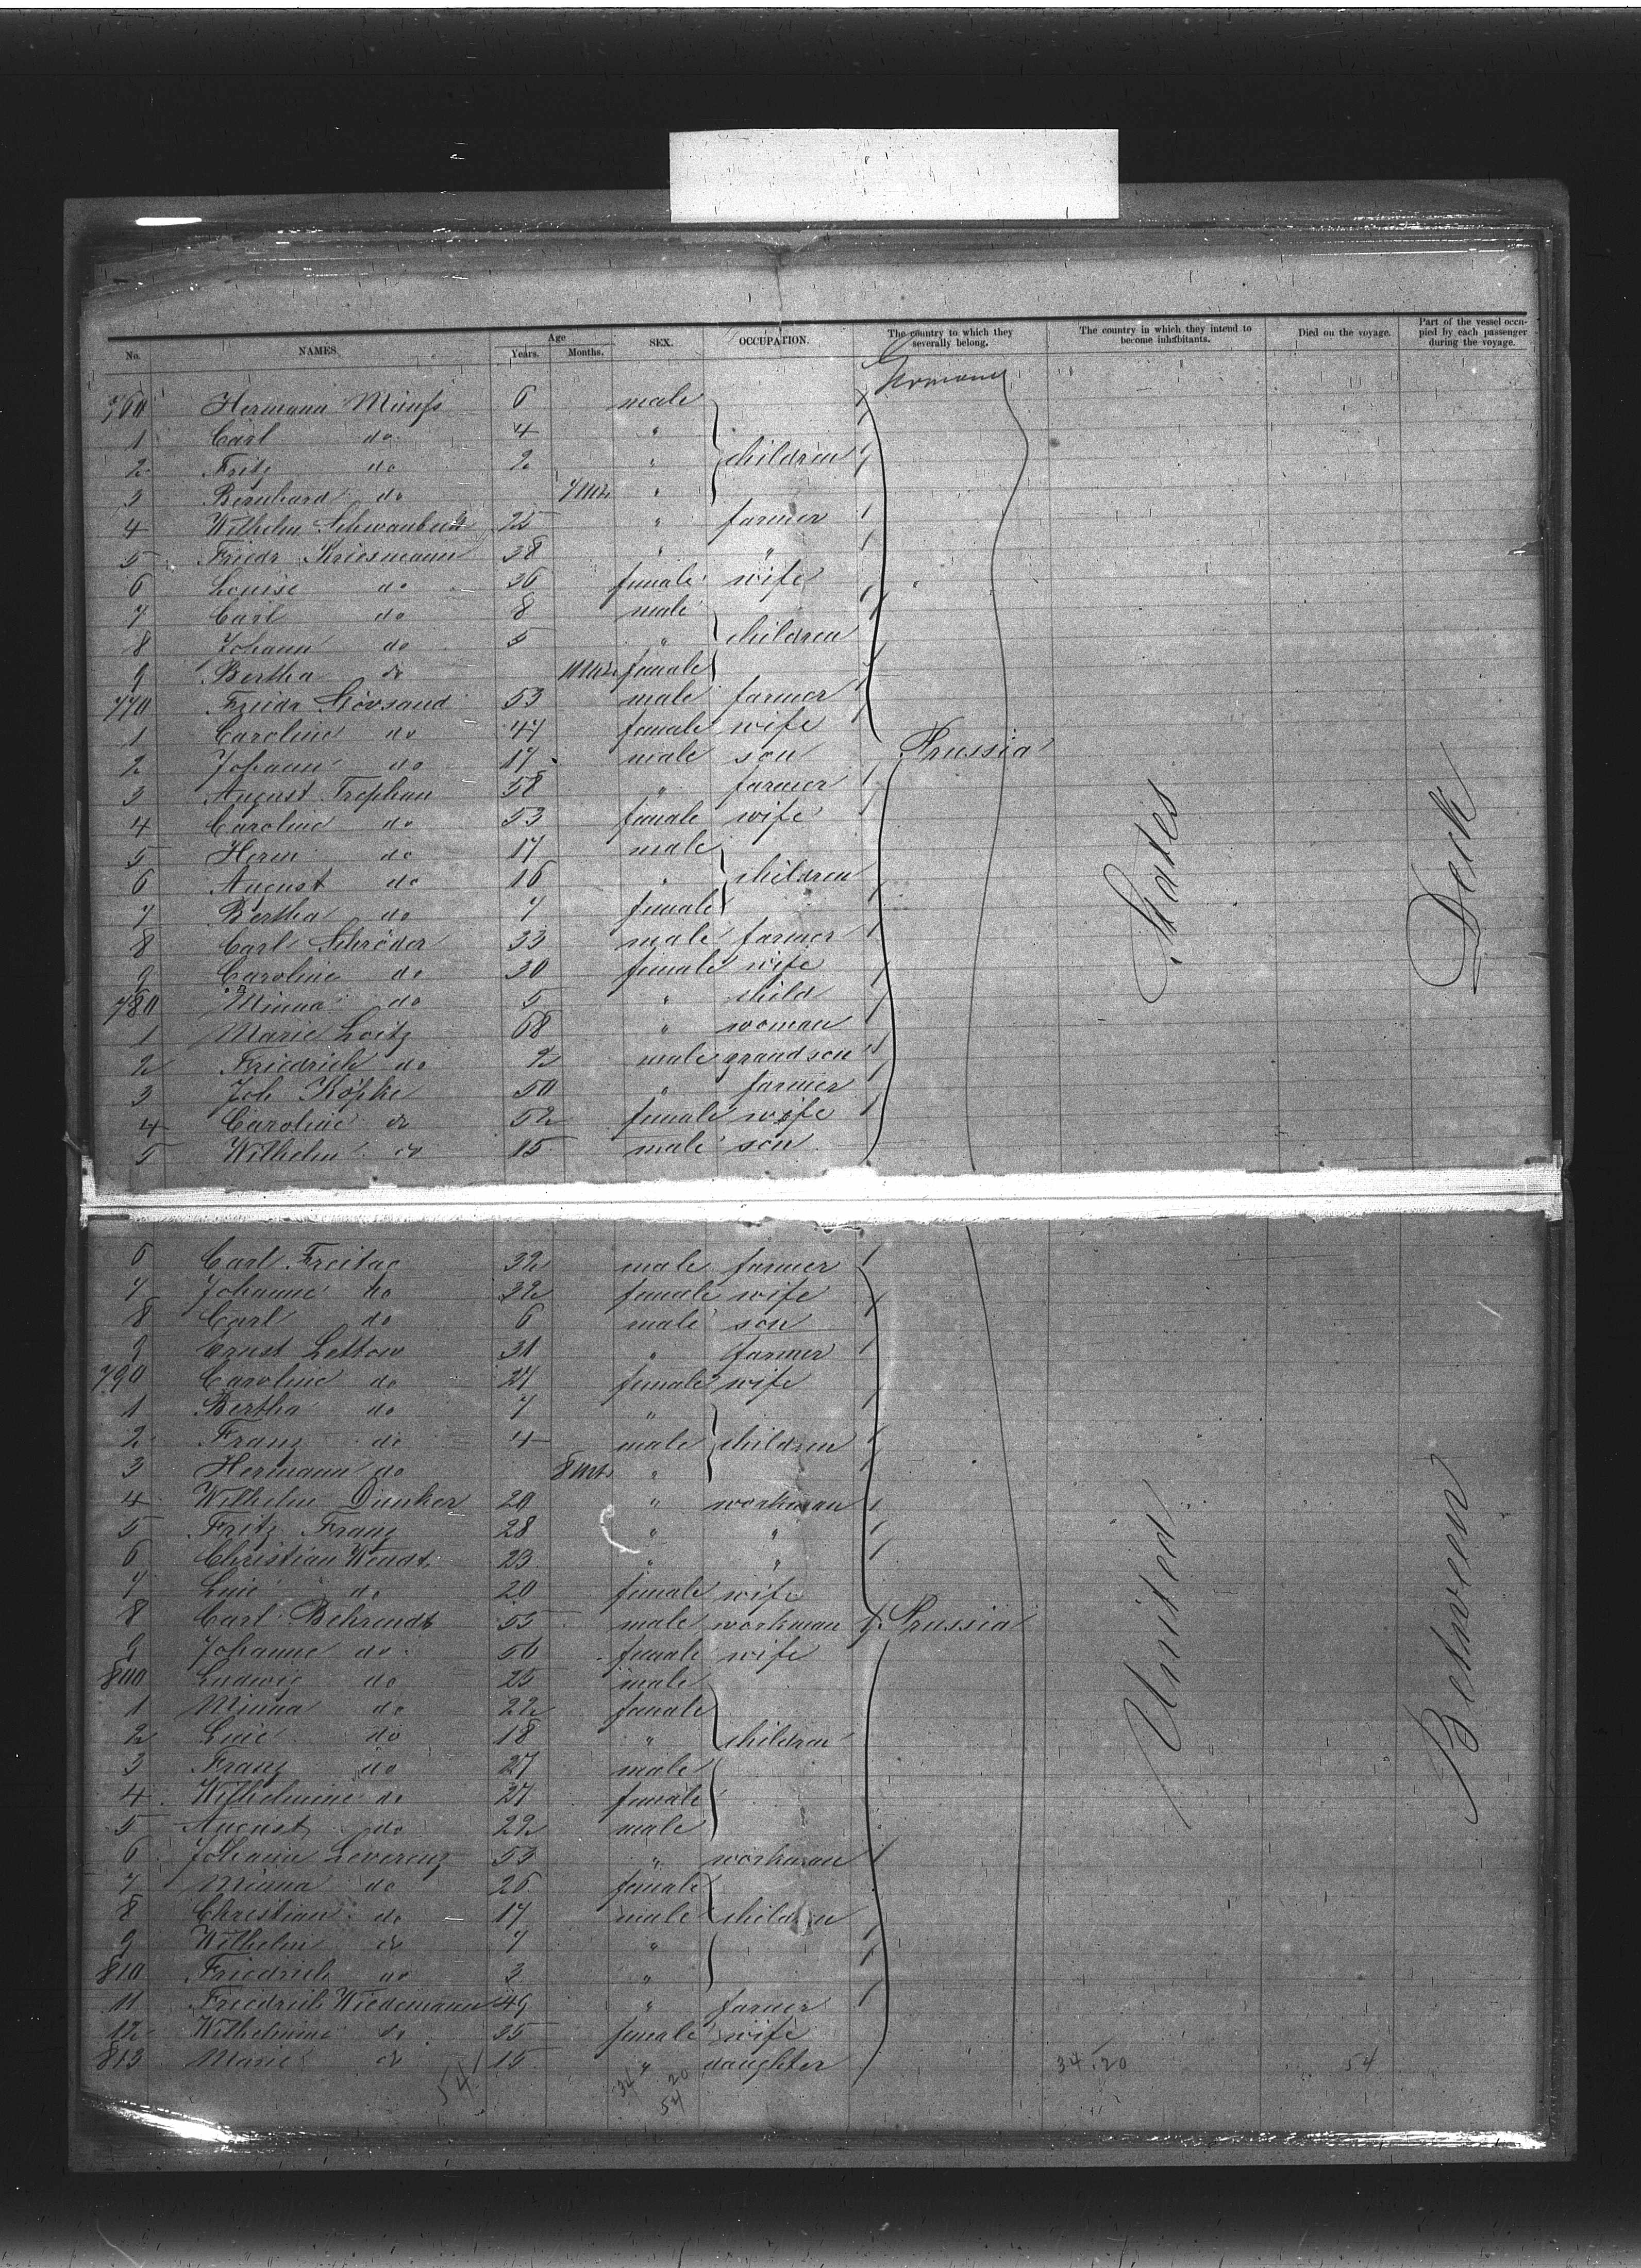 No. NAMES. Age Years. Months. SEX. OCCUPATION. The country to which they severally belong. The country in which they intend to become inhabitants. Died on the voyage. Part of the vessel occupied by each passenger during the voyage.
Germany
760 Hermann 6 male
1 Carl do 4 "
2 Fritz do 2 " children
3 Bernhard do 7 Mts "
4 Wilhelm Schwanbeck 25 " farmer
5 Friedr Kriesmann 38 " "
6 Louise do 36 female wife
7 Carl do 8 male
8 Johann do 5 " children
9 Bertha do 11 Mts female
770 Friedr 53 male farmer
1 Caroline do 47 female wife
2 Johann do 17 male son Prussia
3 August Trephan 58 " farmer
4 Caroline do 53 female wife
5 Herm do 17 male
6 August do 16 " children
7 Bertha do 7 female
8 Carl Schröder 33 male farmer
9 Caroline do 30 female wife
780 Minna do 5 " child
1 Marie Loitz 68 " woman
2 Friedrich do 2 male grandson
3 Joh Köpke 50 " farmer
4 Caroline do 52 female wife
5 Wilhelm do 15 male son
6 Carl Freitag 32 male farmer
7 Johanne do 32 female wife
8 Carl do 6 male son
9 Ernst Lettow 31 " farmer
790 Caroline do 27 female wife
1 Bertha do 7 "
2 Franz do 4 male children
3 Hermann do 8 Mts "
4 Wilhelm Dunker 20 " workman
5 Fritz Franz 28 " "
6 Christian Wendt 23 " "
7 Luie do 20 female wife
8 Carl Behrendt 55 male workman Prussia
9 Johanne do 56 female wife
800 Ludwig do 25 male
1 Minna do 22 female
2 Luie do 18 " children
3 Franz do 27 male
4 Wilhelmine do 27 female
5 August do 22 male
6 Johann Leverenz 53 " workman
7 Minna do 26 female
8 Christian do 17 male children
9 Wilhelm do 7 "
810 Friedrich do 3 "
11 Friedrich Wiedemann 49 " farmer
12 Wilhelmine do 35 female wife
813 Marie do 15 " daughter
34 20 54
54 34 20
54
United States
Between Deck